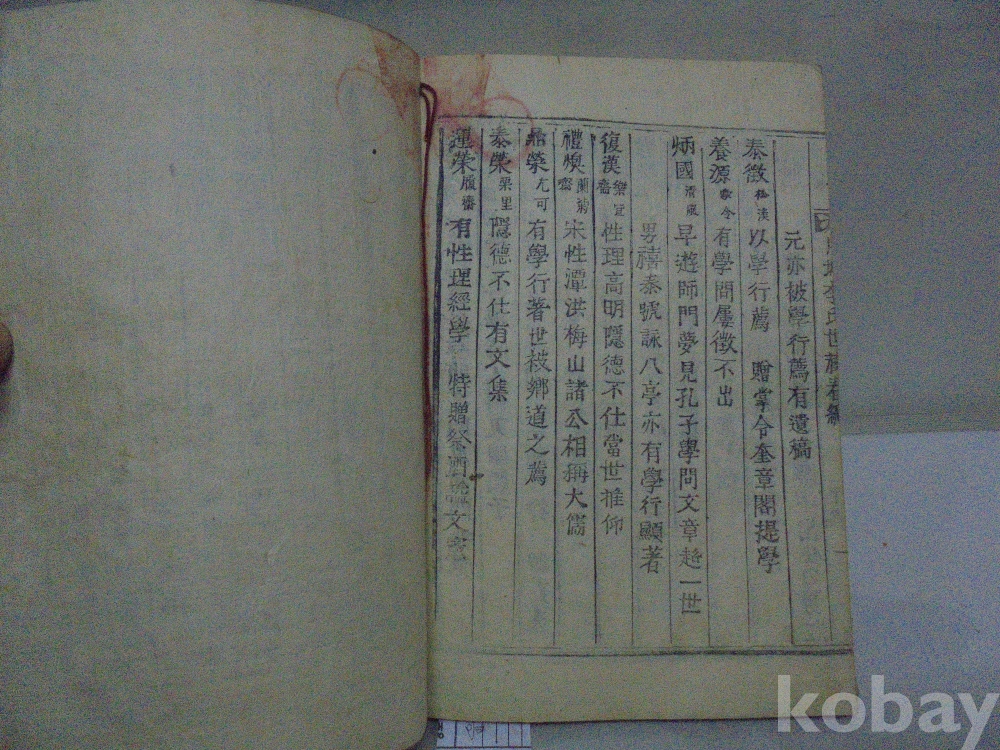 元亦被學行薦有遺稿
泰徵 以學行薦 贈掌令奎章閣提學
養源 有學問屢徵不出
炳國 清風 早遊師門夢見孔子學問文章 一世
男禧泰號詠八亭亦有學行顯著
復漢 樂宜齋 性理高明隱德不仕當世推仰
禮煥 蘭菊齋 宋性潭洪梅山諸公相稱大儒
榮 尤可 有學行著世被鄉道之薦
泰榮 栗里 隱德不仕有文集
榮 履齋 有性理經學 特贈祭酒 文
氏世 卷
kobay